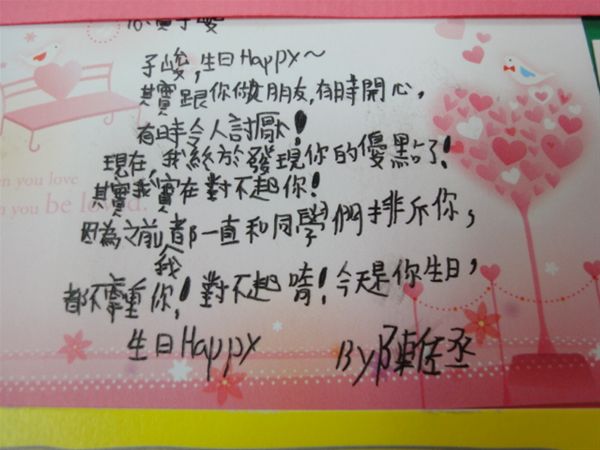 子峻,生日Happy~
其實跟你做朋友,有時開心,
有時令人討厭!
現在,我終於發現你的優點了!
其實我實在對不起你!
因為之前都一直和同學們排斥你,
我
都不尊重你!對不起唷!今天是你生日,
生日Happy By陳佳丞
n you love
you be loved.